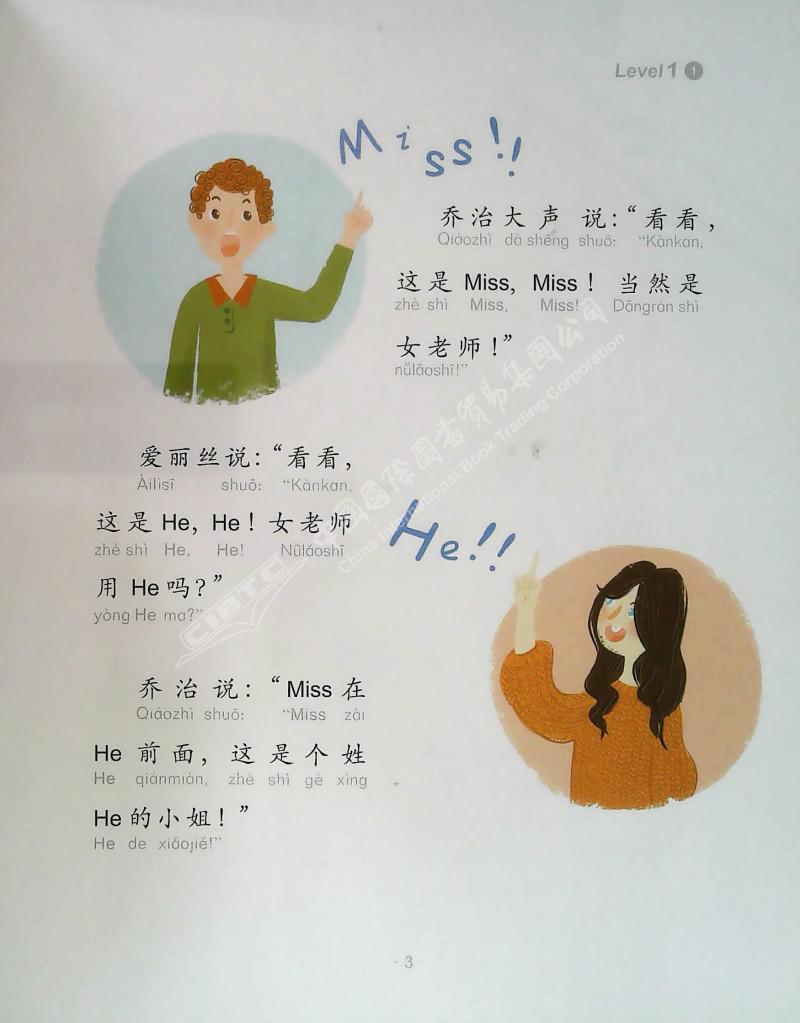 Level 1 1
Miss!!
乔治大声说：“看看，
Qiáozhì dà shēng shuō: “Kànkan,
这是 Miss, Miss！当然是
zhè shì Miss, Miss! Dāngrán shì
女老师！”
nǚlǎoshī!”
爱丽丝说：“看看，
Àilìsī shuō: “Kànkan,
这是 He, He！女老师
zhè shì He, He! Nǚlǎoshī
用 He 吗？”
yòng He ma?”
He!!
乔治说：“Miss 在
Qiáozhì shuō: “Miss zài
He 前面，这是个姓
He qiánmiàn, zhè shì gè xìng
He 的小姐！”
He de xiǎojiě!”
中国国际图书贸易集团公司
China International Book Trading Corporation
CIBTC
· 3 ·